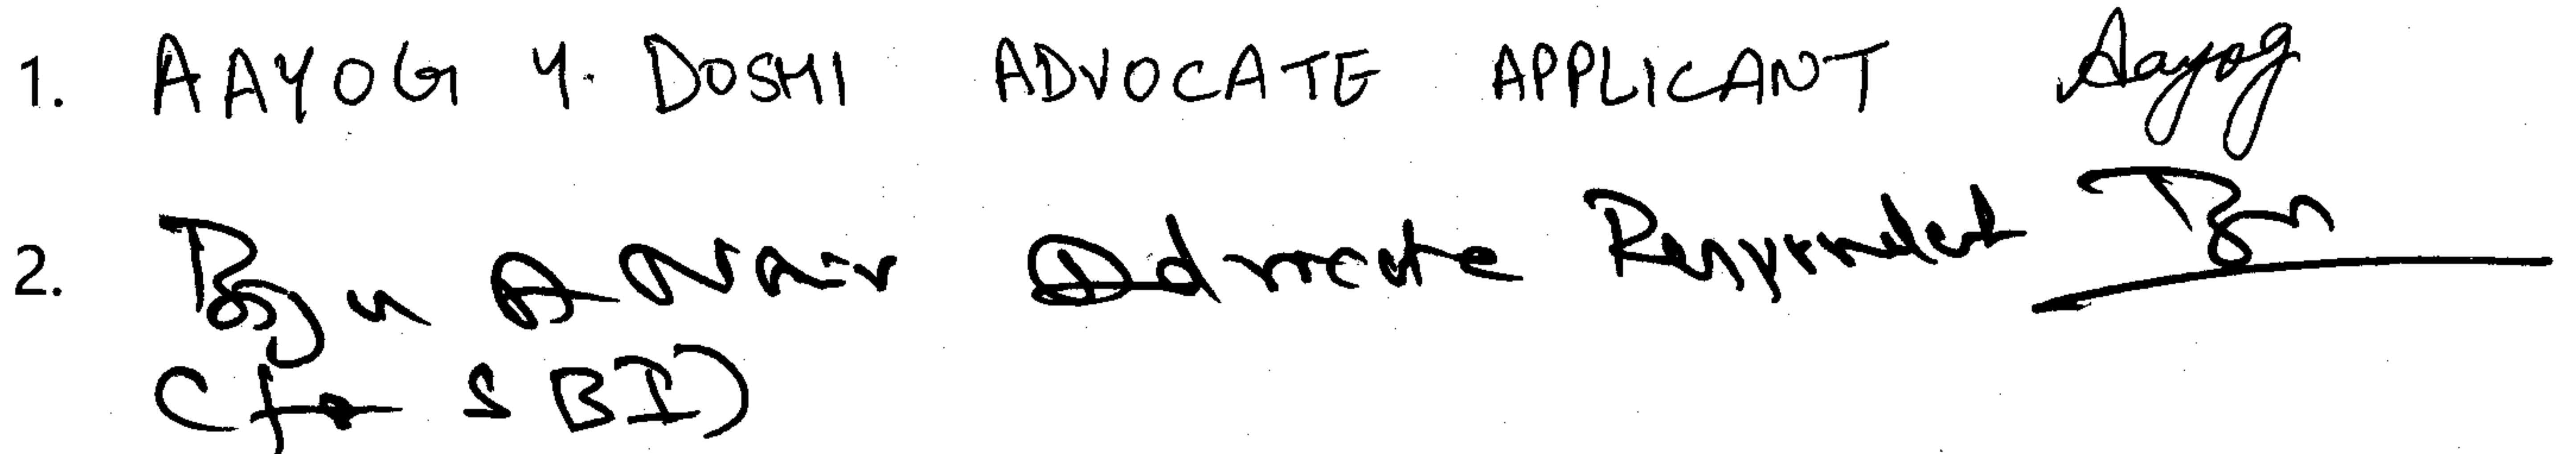 1. AAYOG Y. DOSHI ADVOCATE APPLICANT Aayog
2. Biju A Nair Advocate Respondent
(for SBI)